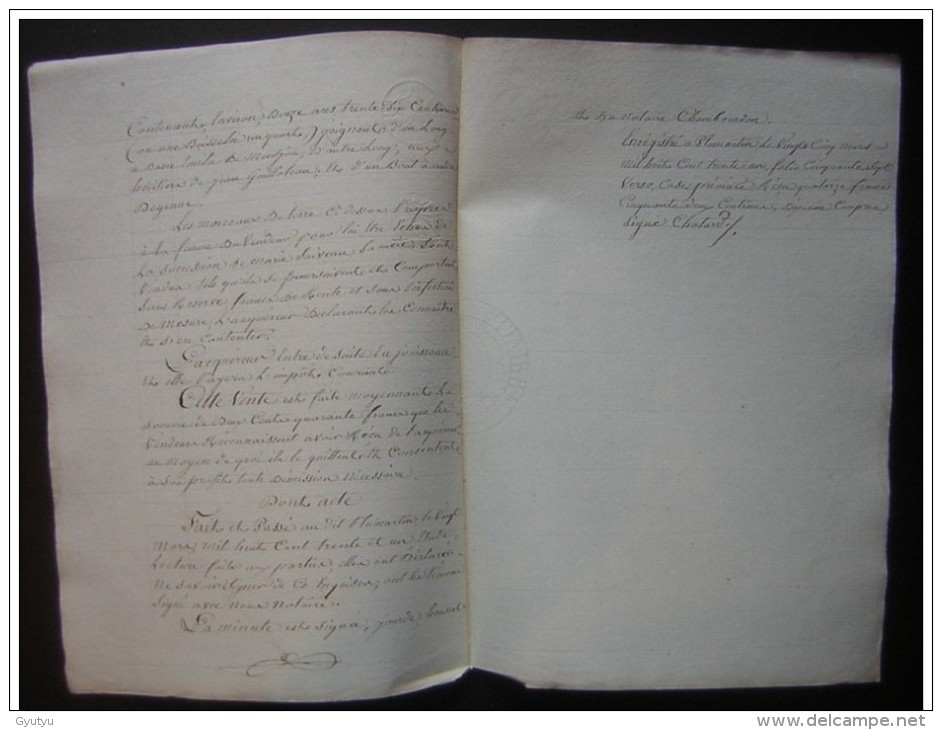 Contenant, environ Douze ares trente six Centiares
(ou une Boisselée un quart,) joignant d'un long
à
héritiers de jean ; et d'un Bout à
Les morceaux de terre Ci dessus
à la femme Du Vendeur pour lui être Echus de
La Succession de marie sa mère, sont
Vendus tels qu'ils se poursuivent et Comportent
sans Réserve, francs De Rente et sous
De mesure, L'acquéreur Déclarant les Connaître
et s'en Contenter.
L'acquéreur Entre de suite En jouissance
et elle Payera L'impôt Courant.
Cette Vente est faite moyennant La
somme de Deux Cents quarante francs que les
Vendeurs Reconnaissent avoir Reçu de l'acquéreur
au moyen de quoi ils le quittent et Consentent
à son profit toute Démission nécessaire.
Dont acte
Fait et Passé au dit Plumartin le Vingt
Mars, mil huit Cent trente et un Etude,
Lecture faite aux parties, elles ont Déclaré
ne savoir Signer de Ce Enquises, ont les témoins
Signé avec nous Notaire.
La minute est signée, jourde,
et Du Notaire Chambourdon.
Enregistré à Plumartin le Vingt Cinq mars
mil huit Cent trente un, folio Cinquante sept
Verso, Case première Reçu quatorze francs
Cinquante deux Centimes, Décime Compris
signé Chotard.
Gyutyu
delcampe.net